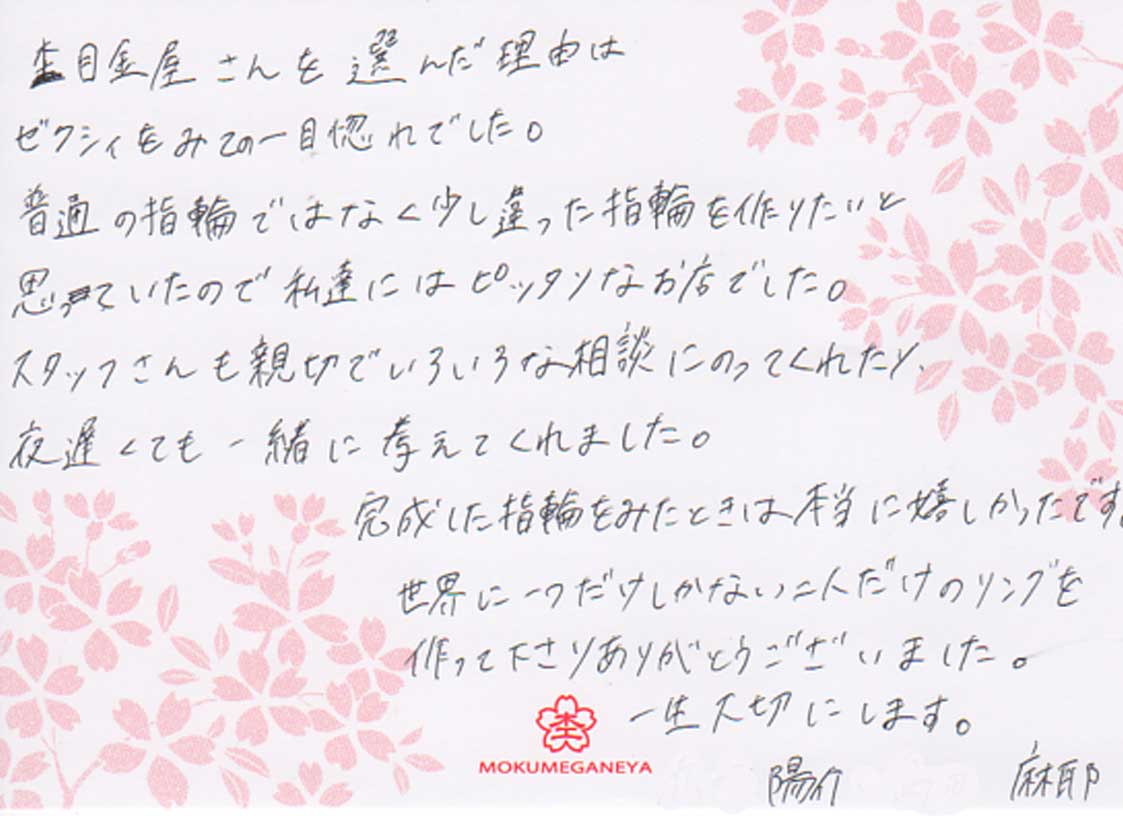 杢目金屋さんを選んだ理由は
ゼクシィをみての一目惚れでした。
普通の指輪ではなく少し違った指輪を作りたいと
思っていたので私達にはピッタリなお店でした。
スタッフさんも親切でいろいろな相談にのってくれたり、
夜遅くても一緒に考えてくれました。
完成した指輪をみたときは本当に嬉しかったです。
世界に一つだけしかない二人だけのリングを
作って下さりありがとうございました。
一生大切にします。
杢
MOKUMEGANEYA
陽介 麻耶